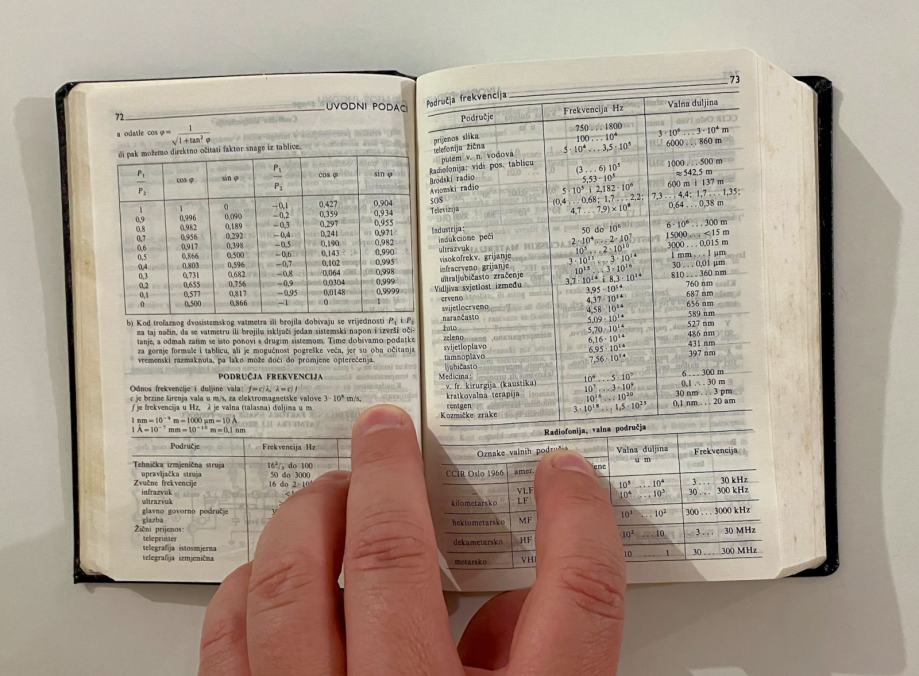 72
UVODNI PODACI
a odatle cos φ = 1
√1+tan² φ
ili pak možemo direktno očitati faktor snage iz tablice.
P₁ / P₂ cos φ sin φ P₁ / P₂ cos φ sin φ
1 1 0 −0,1 0,427 0,904
0,9 0,996 0,090 −0,2 0,359 0,934
0,8 0,982 0,189 −0,3 0,297 0,955
0,7 0,956 0,292 −0,4 0,241 0,971
0,6 0,917 0,398 −0,5 0,190 0,982
0,5 0,866 0,500 −0,6 0,143 0,990
0,4 0,803 0,596 −0,7 0,102 0,995
0,3 0,731 0,682 −0,8 0,064 0,998
0,2 0,655 0,756 −0,9 0,0304 0,999
0,1 0,577 0,817 −0,95 0,0148 0,9999
0 0,500 0,866 −1 0 1
b) Kod trofaznog dvosistemskog vatmetra ili brojila dobivaju se vrijednosti P₁ i P₂
na taj način, da se vatmetru ili brojilu isključi jedan sistemski napon i izvrši oči-
tanje, a odmah zatim se isto ponovi s drugim sistemom. Time dobivamo podatke
za gornje formule i tablicu, ali je mogućnost pogreške veća, jer su oba očitanja
vremenski razmaknuta, pa lako može doći do promjene opterećenja.
PODRUČJA FREKVENCIJA
Odnos frekvencije i duljine vala: f=c/λ, λ=c/f
c je brzine širenja vala u m/s, za elektromagnetske valove 3·10⁸ m/s,
f je frekvencija u Hz, λ je valna (talasna) duljina u m
1 nm=10⁻⁹ m=1000 μm=10 Å
1 Å=10⁻⁷ mm=10⁻¹⁰ m=0,1 nm
Područje Frekvencija Hz
Tehnička izmjenična struja 16²/₃ do 100
upravljačka struja 50 do 3000
Zvučne frekvencije 16 do 2·10
infrazvuk
ultrazvuk
glavno govorno područje
glazba
Žični prijenos:
teleprinter
telegrafija istosmjerna
telegrafija izmjenična
73
Područja frekvencija
Područje Frekvencija Hz Valna duljina
prijenos slika 750...1800
telefonija žična 100...10⁴ 3·10⁶...3·10⁴ m
putem v. n. vodova 5·10⁴...3,5·10⁵ 6000...860 m
Radiofonija: vidi pos. tablicu
Brodski radio (3...6) 10⁵ 1000...500 m
Avionski radio 5,53·10⁵ ≈542,5 m
SOS 5·10⁵ i 2,182·10⁶ 600 m i 137 m
Televizija (0,4...0,68; 1,7...2,2; 7,3...4,4; 1,7...1,35;
4,7...7,9)×10⁸ 0,64...0,38 m
Industrija:
indukcione peći 50 do 10⁶ 6·10⁶...300 m
ultrazvuk 2·10⁴...2·10⁷ 15000...<15 m
visokofrekv. grijanje 10⁵...2·10¹⁰ 3000...0,015 m
infracrveno grijanje 3·10¹¹...3·10¹⁴ 1 mm...1 μm
ultraljubičasto zračenje 10¹³...3·10¹⁶ 30...0,01 μm
Vidljiva svjetlost između 3,7·10¹⁴ i 8,3·10¹⁴ 810...360 nm
crveno 3,95·10¹⁴ 760 nm
svijetlocrveno 4,37·10¹⁴ 687 nm
narančasto 4,58·10¹⁴ 656 nm
žuto 5,09·10¹⁴ 589 nm
zeleno 5,70·10¹⁴ 527 nm
svijetloplavo 6,16·10¹⁴ 486 nm
tamnoplavo 6,95·10¹⁴ 431 nm
ljubičasto 7,56·10¹⁴ 397 nm
Medicina:
v. fr. kirurgija (kaustika) 10⁶...5·10⁷ 6...300 m
kratkovalna terapija 10⁷...3·10⁹ 0,1...30 m
rentgen 10¹⁶...10²⁰ 30 nm...3 pm
Kozmičke zrake 3·10¹⁸...1,5·10²⁵ 0,1 nm...20 am
Radiofonija, valna područja
Oznake valnih područja Valna duljina u m Frekvencija
CCIR Oslo 1966 amer.
VLF 10⁵...10⁴ 3...30 kHz
kilometarsko LF 10⁴...10³ 30...300 kHz
hektometarsko MF 10³...10² 300...3000 kHz
dekametarsko HF 10²...10 3...30 MHz
metarsko VHF 10...1 30...300 MHz